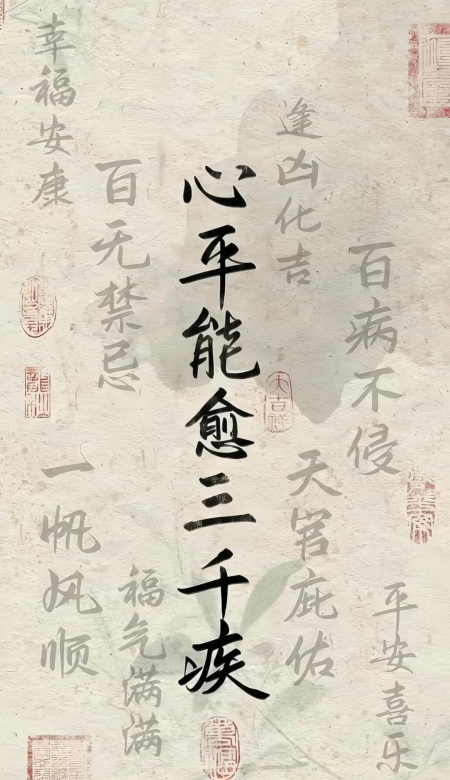 百病不侵
平安喜乐
逢凶化吉
大吉祥
天官庇佑
心平能愈三千疾
百无禁忌
福气满满
幸福安康
一帆风顺